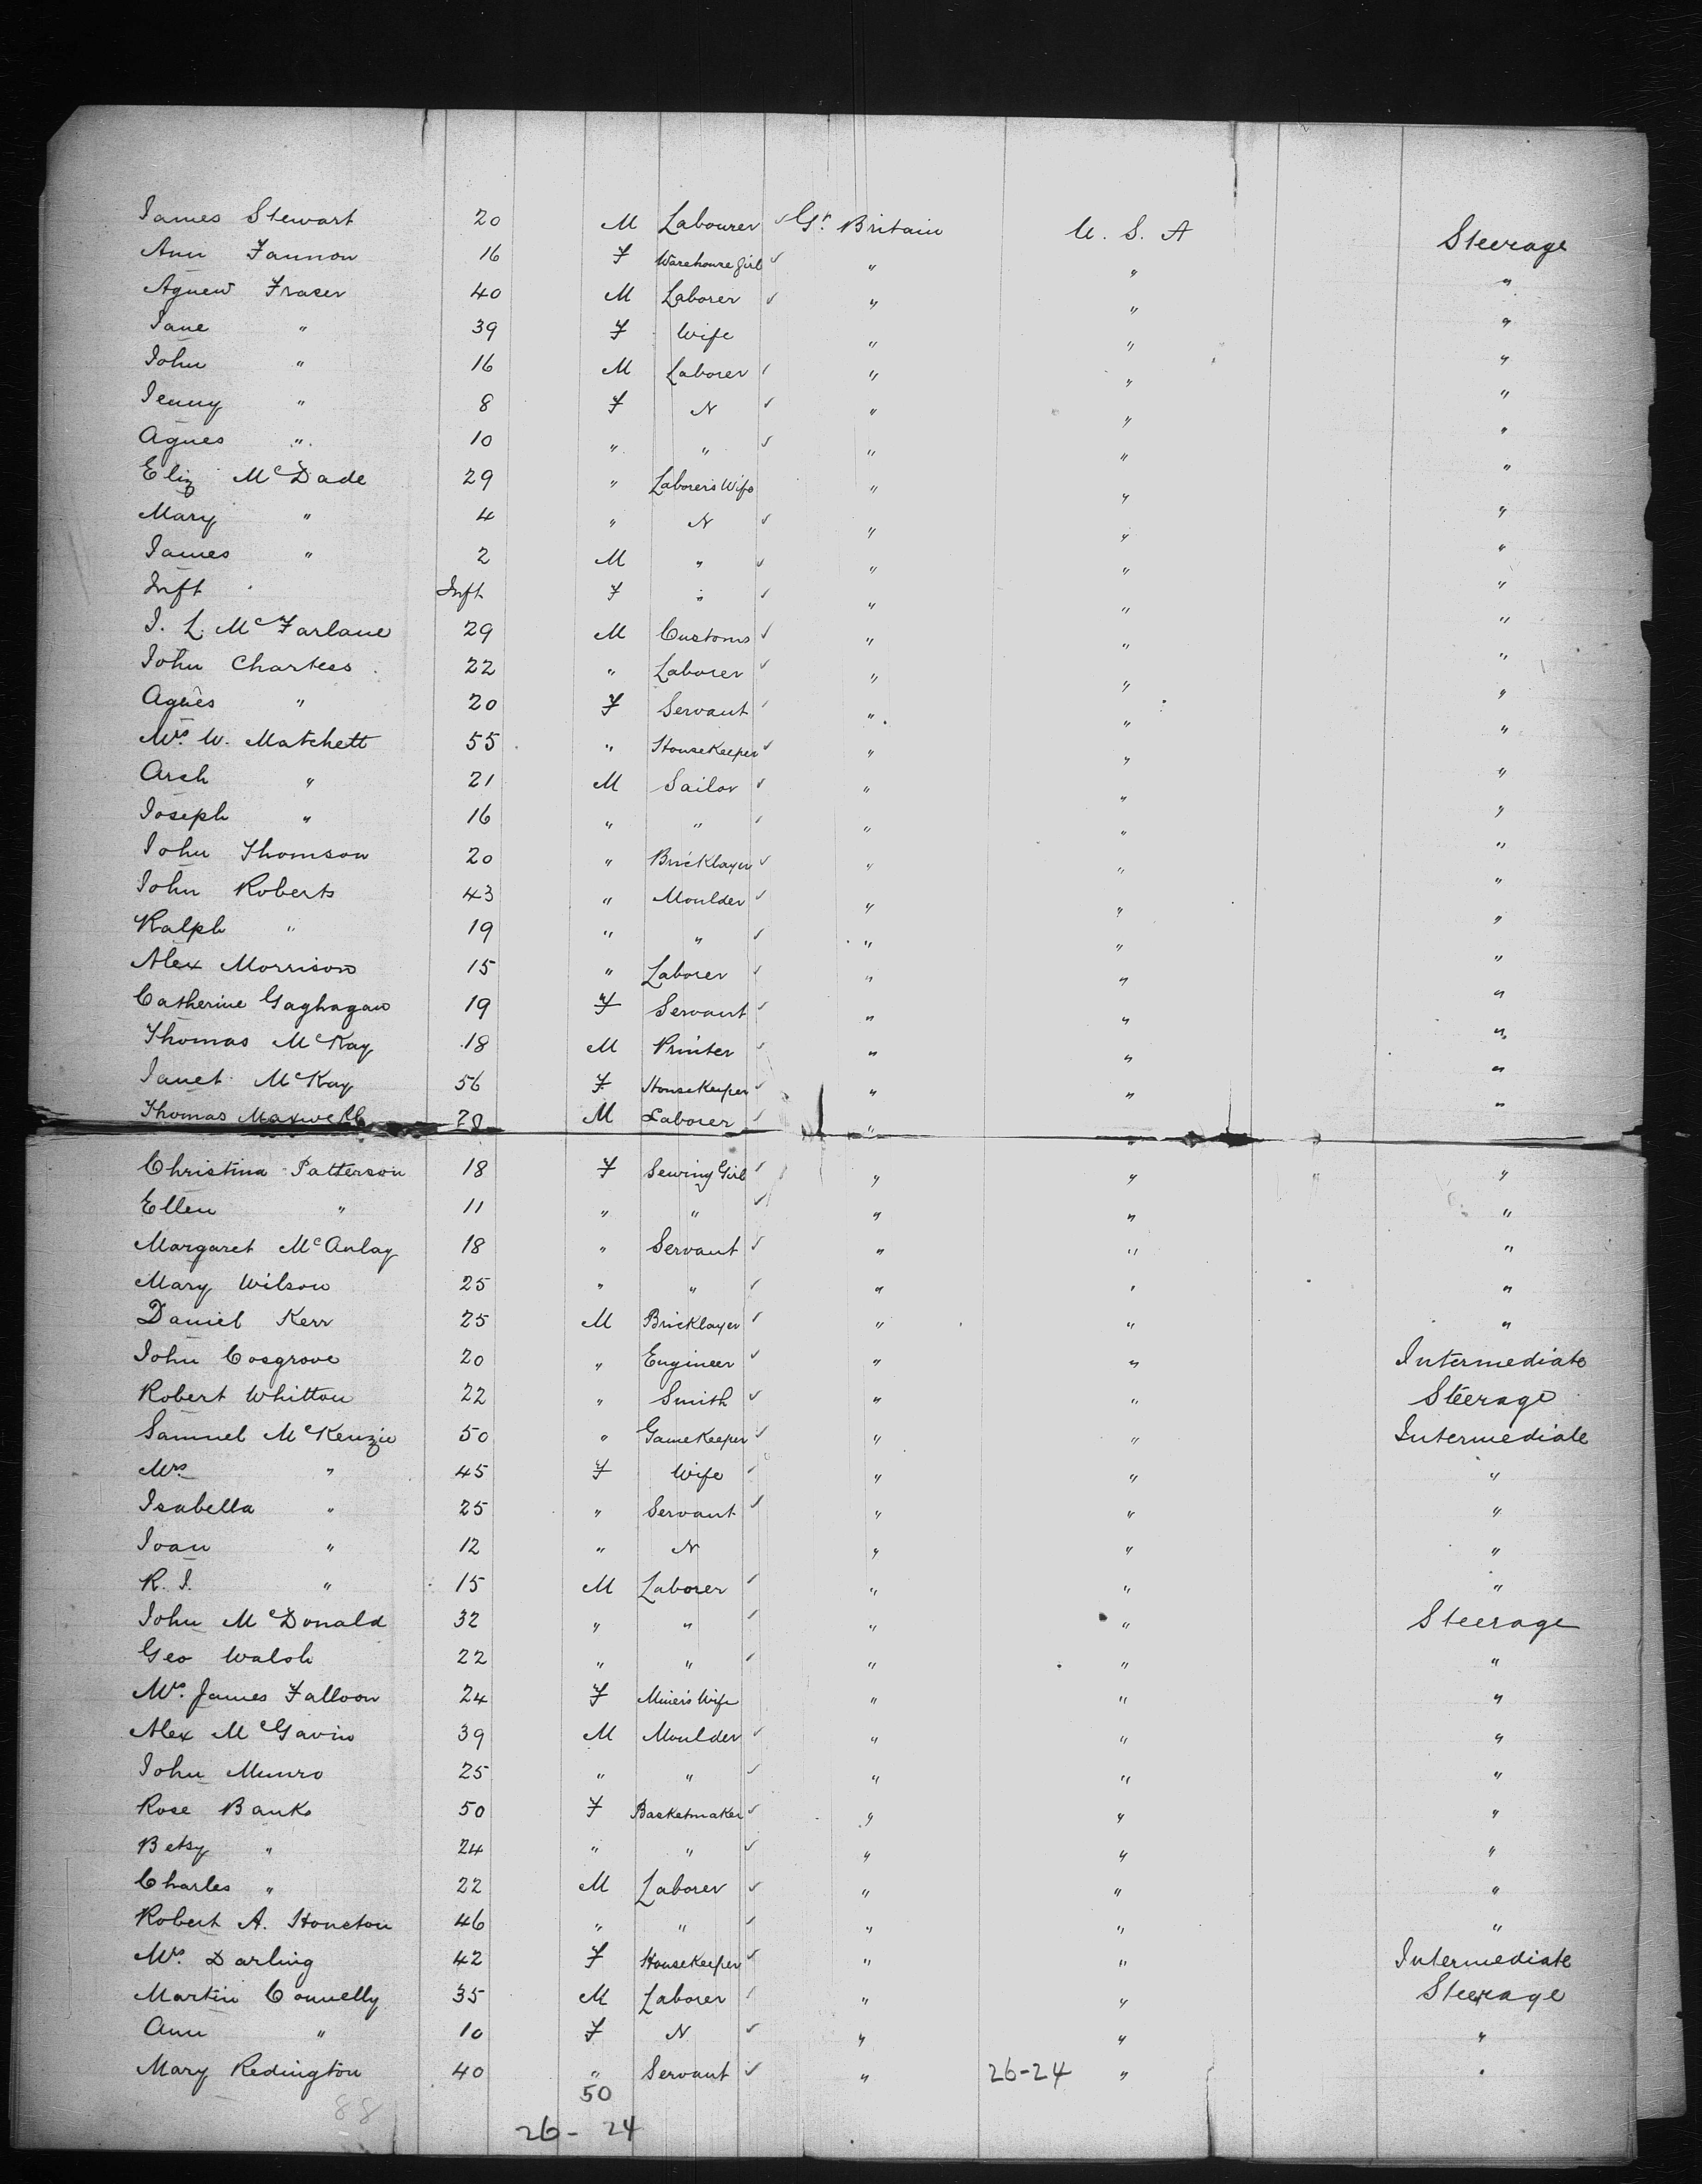 James Stewart 20 M Labourer ✓ Gt. Britain U. S. A Steerage
Ann Fannon 16 F Warehouse girl ✓ " " "
Agnew Fraser 40 M Laborer ✓ " " "
Jane " 39 F Wife " " "
John " 16 M Laborer ✓ " " "
Jenny " 8 F N ✓ " " "
Agnes " 10 " " ✓ " " "
Eliz McDade 29 " Laborer's Wife " " "
Mary " 4 " N ✓ " " "
James " 2 M " ✓ " " "
Inft Inft F " ✓ " " "
J. L. McFarlane 29 M Customs ✓ " " "
John Charters 22 " Laborer ✓ " " "
Agnes " 20 F Servant ✓ " " "
Mrs. W. Matchett 55 " HouseKeeper ✓ " " "
Arch " 21 M Sailor ✓ " " "
Joseph " 16 " " ✓ " " "
John Thomson 20 " Bricklayer ✓ " " "
John Roberts 43 " Moulder ✓ " " "
Ralph " 19 " " ✓ " " "
Alex Morrison 15 " Laborer ✓ " " "
Catherine Gaghagan 19 F Servant ✓ " " "
Thomas McKay 18 M Printer ✓ " " "
Janet McKay 56 F HouseKeeper ✓ " " "
Thomas Maxwell M Laborer ✓ " " "
Christina Patterson 18 F Sewing Girl ✓ " " "
Ellen " 11 " " ✓ " " "
Margaret McAulay 18 " Servant ✓ " " "
Mary Wilson 25 " " ✓ " " "
Daniel Kerr 25 M Bricklayer ✓ " " "
John Cosgrove 20 " Engineer ✓ " " Intermediate
Robert Whitton 22 " Smith ✓ " " Steerage
Samuel McKenzie 50 " GameKeeper ✓ " " Intermediate
Mrs. " 45 F Wife ✓ " " "
Isabella " 25 " Servant ✓ " " "
Joan " 12 " N " " "
R. J. " 15 M Laborer ✓ " " "
John McDonald 32 " " ✓ " " Steerage
Geo Walsh 22 " " ✓ " " "
Mrs. James Falloon 24 F Miner's Wife " " "
Alex McGavin 39 M Moulder ✓ " " "
John Munro 25 " " ✓ " " "
Rose Banks 50 F Basketmaker ✓ " " "
Betsy " 24 " " ✓ " " "
Charles " 22 M Laborer ✓ " " "
Robert A. Houston 46 " " ✓ " " "
Mrs. Darling 42 F HouseKeeper ✓ " " Intermediate
Martin Connelly 35 M Laborer ✓ " " Steerage
Ann " 10 F N ✓ " " "
Mary Redington 40 " Servant ✓ " 26-24 " "
50
88
26- 24